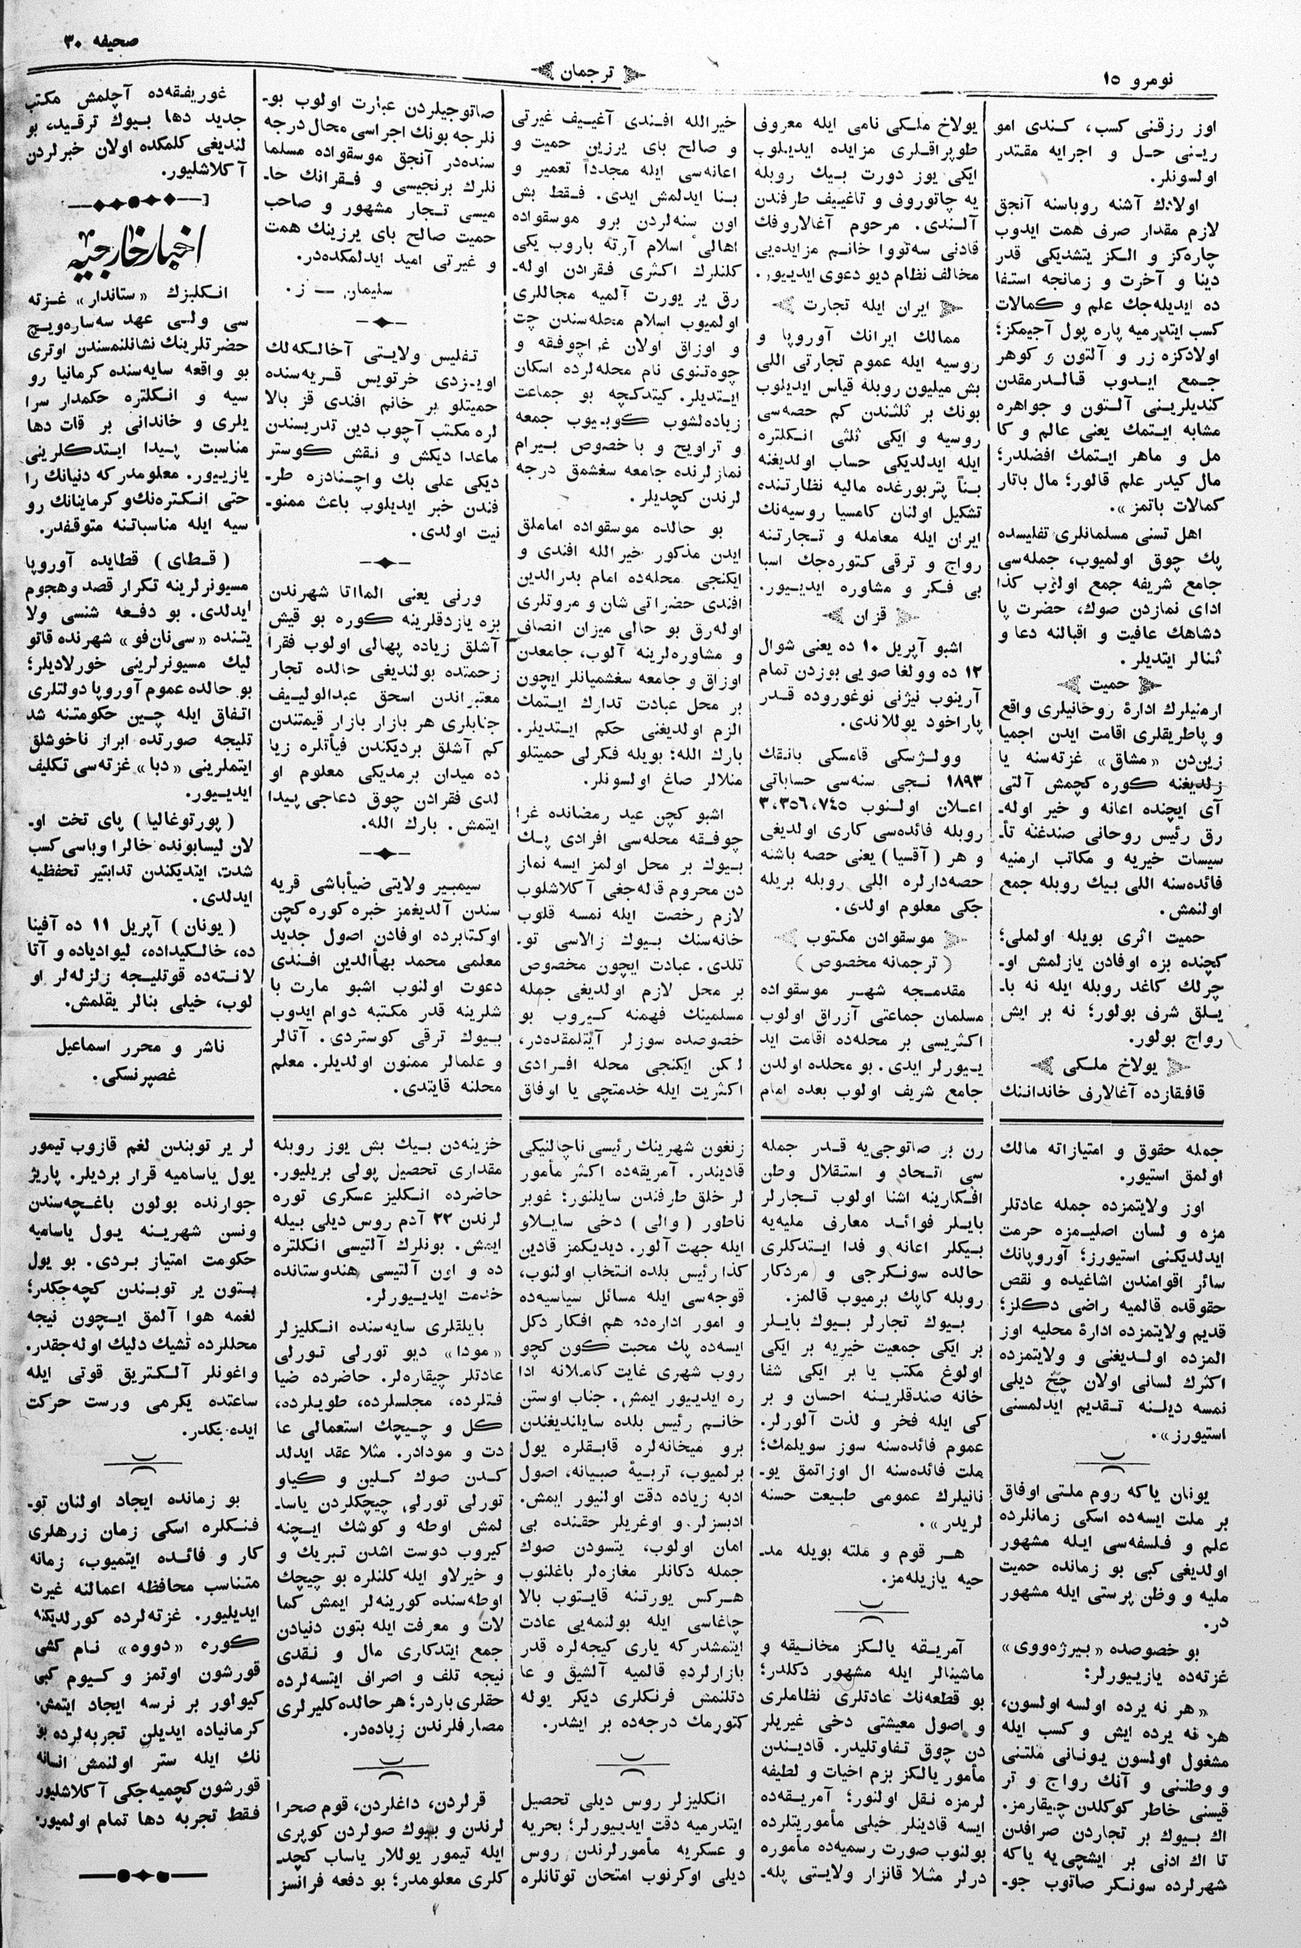 نومرو ١٥
ترجمان
صحیفه ٣٠
اوز رزقنی کسب، کندی امو
رینی حل و اجرایه مقتدر
اولسونلر.
اولادك آشنه روباسنه آنجق
لازم مقدار صرف همت ایدوب
چاره‌کز و الکز یتشدیکی قدر
دینا و آخرت و زمانجه استفا
ده ایدیله‌جك علم و کمالات
کسب ایتدرمیه پاره پول آجیمکز؛
اولادکزه زر و آلتون و کوهر
جمع ایدوب قالدرمقدن
کندیلرینی آلتون و جواهره
مشابه ایتمك یعنی عالم و کا
مل و ماهر ایتمك افضلدر؛
مال کیدر علم قالور؛ مال باتار
کمالات باتمز».
اهل تسنی مسلمانلری تفلیسده
پك چوق اولمیوب، جمله‌سی
جامع شریفه جمع اولوب کذا
ادای نمازدن صوك، حضرت پا
دشاهك عافیت و اقبالنه دعا و
ثنالر ایتدیلر.
حمیت
ارمنیلرك ادارۀ روحانیلری واقع
و پاطریقلری اقامت ایدن اجمیا
زین‌دن «مشاق» غزته‌سنه یا
زلدیغنه کوره کچمش آلتی
آی ایچنده اعانه و خیر اوله‌ـ
رق رئیس روحانی صندغنه تأـ
سیسات خیریه و مکاتب ارمنیه
فائده‌سنه اللی بیك روبله جمع
اولنمش.
حمیت اثری بویله اولملی؛
کچنده بزه اوفادن یازلمش اوـ
چرلك کاغد روبله ایله نه باـ
یلق شرف بولور؛ نه بر ایش
رواج بولور.
یولاخ ملکی
قافقازده آغالارف خاندانینك
یولاخ ملکی نامی ایله معروف
طوپراقلری مزایده ایدیلوب
ایکی یوز دورت بیك روبله
یه چاتوروف و تاغییف طرفندن
آلندی. مرحوم آغالاروفك
قادنی سه‌تووا خانم مزایده‌یی
مخالف نظام دیو دعوی ایدییور.
ایران ایله تجارت
ممالك ایرانك آوروپا و
روسیه ایله عموم تجارتی اللی
بش میلیون روبله قیاس ایدیلوب
بونك بر ثلثندن کم حصه‌سی
روسیه و ایکی ثلثی انکلتره
ایله ایدلدیکی حساب اولدیغنه
بناً پتربورغده مالیه نظارتنده
تشکیل اولنان کامسیا روسیه‌نك
ایران ایله معامله و تجارتنه
رواج و ترقی کتوره‌جك اسبا
بی فکر و مشاوره ایدییور.
قزان
اشبو آپریل ١٠ ده یعنی شوال
١٢ ده وولغا صویی بوزدن تمام
آرینوب نیژنی نوغوروده قدر
پاراخود یوللاندی.
وولژسکی قامسکی بانقك
١٨٩٣ نجی سنه‌سی حساباتی
اعلان اولنوب ٣،٣٥٦،٧٤٥
روبله فائده‌سی کاری اولدیغی
و هر (آقسیا) یعنی حصه باشنه
حصه‌دارلره اللی روبله بریله
جکی معلوم اولدی.
موسقوادن مکتوب
(ترجمانه مخصوص)
مقدمجه شهر موسقواده
مسلمان جماعتی آزراق اولوب
اکثریسی بر محله‌ده اقامت اید
ییورلر ایدی. بو محله‌ده اولدن
جامع شریف اولوب بعده امام
خیرالله افندی آغییف غیرتی
و صالح بای یرزین حمیت و
اعانه‌سی ایله مجدداً تعمیر و
بنا ایدلمش ایدی. فقط بش
اون سنه‌لردن برو موسقواده
اهالیٔ اسلام آرته باروب یکی
کلنلرك اکثری فقرادن اوله‌ـ
رق یر یورت آلمیه مجاللری
اولمیوب اسلام محله‌سندن چت
و اوزاق اولان غراچوفقه و
چوه‌تنوی نام محله‌لرده اسکان
ایتدیلر. کیتدکچه بو جماعت
زیاده‌لشوب کوبیوب جمعه
و تراویح و با خصوص بیرام
نمازلرنده جامعه سغشمق درجه
لرندن کچدیلر.
بو حالده موسقواده اماملق
ایدن مذکور خیرالله افندی و
ایکنجی محله‌ده امام بدرالدین
افندی حضراتی شان و مروتلری
اوله‌رق بو حالی میزان انصاف
و مشاوره‌لرینه آلوب، جامعدن
اوزاق و جامعه سغشمیانلر ایچون
بر محل عبادت تدارك ایتمك
الزم اولدیغنی حکم ایتدیلر.
بارك الله؛ بویله فکرلی حمیتلو
منلالر صاغ اولسونلر.
اشبو کچن عید رمضانده غرا
چوفقه محله‌سی افرادی پك
بیوك بر محل اولمز ایسه نماز
دن محروم قاله‌جغی آکلاشلوب
لازم رخصت ایله نمسه قلوب
خانه‌سنك بیوك زالاسی توـ
تلدی. عبادت ایچون مخصوص
بر محل لازم اولدیغی جمله
مسلمینك فهمنه کیروب بو
خصوصده سوزلر آیتلمقده‌در،
لکن ایکنجی محله افرادی
اکثریت ایله خدمتچی یا اوفاق
صاتوجیلردن عبارت اولوب بوـ
نلرجه بونك اجراسی محال درجه
سنده‌در آنجق موسقواده مسلما
نلرك برنجیسی و فقرانك حاـ
میسی تجار مشهور و صاحب
حمیت صالح بای یرزینك همت
و غیرتی امید ایدلمکده‌در.
سلیمان — ز.
تفلیس ولایتی آخالکه‌لك
اویزدی خرتویس قریه‌سنده
حمیتلو بر خانم افندی قز بالا
لره مکتب آچوب دین تدریسندن
ماعدا دیکش و نقش کوستر
دیکی علی بك واچنادزه طرـ
فندن خبر ایدیلوب باعث ممنوـ
نیت اولدی.
ورنی یعنی الماانا شهرندن
بزه یازدقلرینه کوره بو قیش
آشلق زیاده پهالی اولوب فقرا
زحمتده بولندیغی حالده تجار
معتبراندن اسحق عبدالولییف
جنابلری هر بازار بازار قیمتندن
کم آشلق بردیکندن فیأتلره زیا
ده میدان برمدیکی معلوم او
لدی فقرادن چوق دعاجی پیدا
ایتمش. بارك الله.
سیمبیر ولایتی ضیأباشی قریه
سندن آلدیغمز خبره کوره کچن
اوکتابرده اوفادن اصول جدید
معلمی محمد بهأالدین افندی
دعوت اولنوب اشبو مارت با
شلرینه قدر مکتبه دوام ایدوب
بیوك ترقی کوستردی. آتالر
و علمالر ممنون اولدیلر. معلم
محلنه قایتدی.
غوریفقه‌ده آچلمش مکتب
جدید دها بیوك ترقیده، بو
لندیغی کلمکده اولان خبرلردن
آکلاشلیور.
اخبار خارجیه
انکلیزك «ستاندار» غزته
سی ولی عهد سه‌ساره‌ویچ
حضرتلرینك نشانلنمسندن اوتری
بو واقعه سایه‌سنده کرمانیا رو
سیه و انکلتره حکمدار سرا
یلری و خاندانی بر قات دها
مناسبت پیدا ایتدکلرینی
یازییور. معلومدر که دنیانك را
حتی انکتره‌نك و کرمانیانك رو
سیه ایله مناسباتنه متوقفدر.
(قطای) قطایده آوروپا
مسیونرلرینه تکرار قصد وهجوم
ایدلدی. بو دفعه شنسی ولا
یتنده «سی‌نان‌فو» شهرنده قاتو
لیك مسیونرلرینی خورلادیلر؛
بو حالده عموم آوروپا دولتلری
اتفاق ایله چین حکومتنه شد
تلیجه صورتده ابراز ناخوشلق
ایتملرینی «دبا» غزته‌سی تکلیف
ایدییور.
(پورتوغالیا) پای تخت اوـ
لان لیسابونده خالرا وباسی کسب
شدت ایتدیکندن تدابتیر تحفظیه
ایدلدی.
(یونان) آپریل ١١ ده آفینا
ده، خالکیداده، لیوادیاده و آتا
لانته‌ده قوتلیجه زلزله‌لر او
لوب، خیلی بنالر یقلمش.
ناشر و محرر اسماعیل
غصپرنسکی.
جمله حقوق و امتیازاته مالك
اولمق استیور.
اوز ولایتمزده جمله عادتلر
مزه و لسان اصلیمزه حرمت
ایدلدیکنی استیورز؛ آوروپانك
سائر اقوامندن اشاغیده و نقص
حقوقده قالمیه راضی دکلز؛
قدیم ولایتمزده ادارۀ محلیه اوز
المزده اولدیغنی و ولایتمزده
اکثرك لسانی اولان چخ دیلی
نمسه دیلنه تقدیم ایدلمسنی
استیورز».
یونان یاکه روم ملتی اوفاق
بر ملت ایسه‌ده اسکی زمانلرده
علم و فلسفه‌سی ایله مشهور
اولدیغی کبی بو زمانده حمیت
ملیه و وطن پرستی ایله مشهور
در.
بو خصوصده «بیرژه‌ووی»
غزته‌ده یازییورلر:
«هر نه یرده اولسه اولسون،
هر نه یرده ایش و کسب ایله
مشغول اولسون یونانی ملتنی
و وطننی و آنك رواج و تر
قیسنی خاطر کوکلدن چیقارمز.
اك بیوك بر تجاردن صرافدن
تا اك ادنی بر ایشچی یه یاکه
شهرلرده سونکر صاتوب جوـ
رن بر صاتوجی‌یه قدر جمله
سی اتحاد و استقلال وطن
افکارینه اشنا اولوب تجارلر
بایلر فوائد معارف ملیه‌یه
بیکلر اعانه و فدا ایتدکلری
حالده سونکرجی و مردکار
روبله کاپك برمیوب قالمز.
بیوك تجارلر بیوك بایلر
بر ایکی جمعیت خیریه بر ایکی
اولوغ مکتب یا بر ایکی شفا
خانه صندقلرینه احسان و بر
کی ایله فخر و لذت آلورلر.
عموم فائده‌سنه سوز سویلمك؛
ملت فائده‌سنه ال اوزاتمق یوـ
نانیلرك عمومی طبیعت حسنه
لریدر».
هر قوم و ملته بویله مدـ
حیه یازیله‌مز.
آمریقه یالکز مخانیقه و
ماشینالر ایله مشهور دکلدر؛
بو قطعه‌نك عادتلری نظاملری
و اصول معیشتی دخی غیریلر
دن چوق تفاوتلیدر. قادیندن
مأمور یالکز بزم اخیات و لطیفه
لرمزه نقل اولنور؛ آمریقه‌ده
ایسه قادینلر خیلی مأموریتلرده
بولنوب صورت رسمیه‌ده مأموره
درلر مثلا قانزار ولایتی پله‌ـ
زنغون شهرینك رئیسی ناچالنیکی
قادیندر. آمریقه‌ده اکثر مأمور
لر خلق طرفندن سایلنور؛ غوبر
ناطور (والی) دخی سایلاو
ایله جهت آلور. دیدیکمز قادین
کذا رئیس بلده انتخاب اولنوب،
قوجه‌سی ایله مسائل سیاسیه‌ده
و امور اداره‌ده هم افکار دکل
ایسه‌ده پك محبت کون کچو
روب شهری غایت کاملانه ادا
ره ایدییور ایمش. جناب اوستن
خانم رئیس بلده سایلندیغندن
برو میخانه‌لره قابقلره یول
برلمیوب، تربیۀ صبیانه، اصول
ادبه زیاده دقت اولنیور ایمش.
ادبسزلر و اوغریلر حقنده بی
امان اولوب، یتسودن صوك
جمله دکانلر مغازه‌لر باغلنوب
هرکس یورتنه قایتوب بالا
چاغاسی ایله بولنمه‌یی عادت
ایتمشدر که یاری کیجه‌لره قدر
بازارلرده قالمیه آلشیق و عا
دتلنمش فرنکلری دیکر یوله
کتورمك درجه‌ده بر ایشدر.
انکلیزلر روس دیلی تحصیل
ایتدرمیه دقت ایدییورلر؛ بحریه
و عسکریه مأمورلرندن روس
دیلی اوکرنوب امتحان توتانلره
خزینه‌دن بیك بش یوز روبله
مقداری تحصیل پولی بریلیور.
حاضرده انکلیز عسکری توره
لرندن ٢٢ آدم روس دیلی بیله
ایمش. بونلرك آلتیسی انکلتره
ده و اون آلتیسی هندوستانده
خدمت ایدییورلر.
بایلقلری سایه‌سنده انکلیزلر
«مودا» دیو تورلی تورلی
عادتلر چیقارەلر. حاضرده ضیا
فتلرده، مجلسلرده، طویلرده،
کل و چیچك استعمالی عا
دت و مودادر. مثلا عقد ایدلد
کدن صوك کلین و کیاو
تورلی تورلی چیچکلردن یاساـ
لمش اوطه و کوشك ایچنه
کیروب دوست اشدن تبریك و
و خیرلاو ایله کلنلره بو چیچك
اوطه‌سنده کورینه‌لر ایمش کما
لات و معرفت ایله بتون دنیادن
جمع ایتدکاری مال و نقدی
نیجه تلف و اصراف ایتسه‌لرده
حقلری باردر؛ هر حالده کلیرلری
مصارفلرندن زیاده‌در.
قرلردن، داغلردن، قوم صحرا
لرندن و بیوك صولردن کوپری
ایله تیمور یوللار یاساب کچدـ
کلری معلومدر؛ بو دفعه فرانسز
لر یر توبندن لغم قازوب تیمور
یول یاسامیه قرار بردیلر. پاریژ
جوارنده بولون باغچه‌سندن
ونسن شهرینه یول یاسامیه
حکومت امتیاز بردی. بو یول
بتون یر توبندن کچه‌جکدر؛
لغمه هوا آلمق ایچون نیجه
محللرده تشیك دلیك اوله‌جقدر.
واغونلر آلکتریق قوتی ایله
ساعتده یکرمی ورست حرکت
ایده‌جکدر.
بو زمانده ایجاد اولنان توـ
فنکلره اسکی زمان زرهلری
کار و فائده ایتمیوب، زمانه
متناسب محافظه اعمالنه غیرت
ایدیلیور. غزته‌لرده کورلدیکنه
کوره «دووه» نام کشی
قورشون اوتمز و کیوم کبی
کیولور بر نرسه ایجاد ایتمش.
کرمانیاده ایدیلن تجربه‌لرده بو
نك ایله ستر اولنمش انسانه
قورشون کچمیه‌جکی آکلاشلیور
فقط تجربه دها تمام اولمیور.